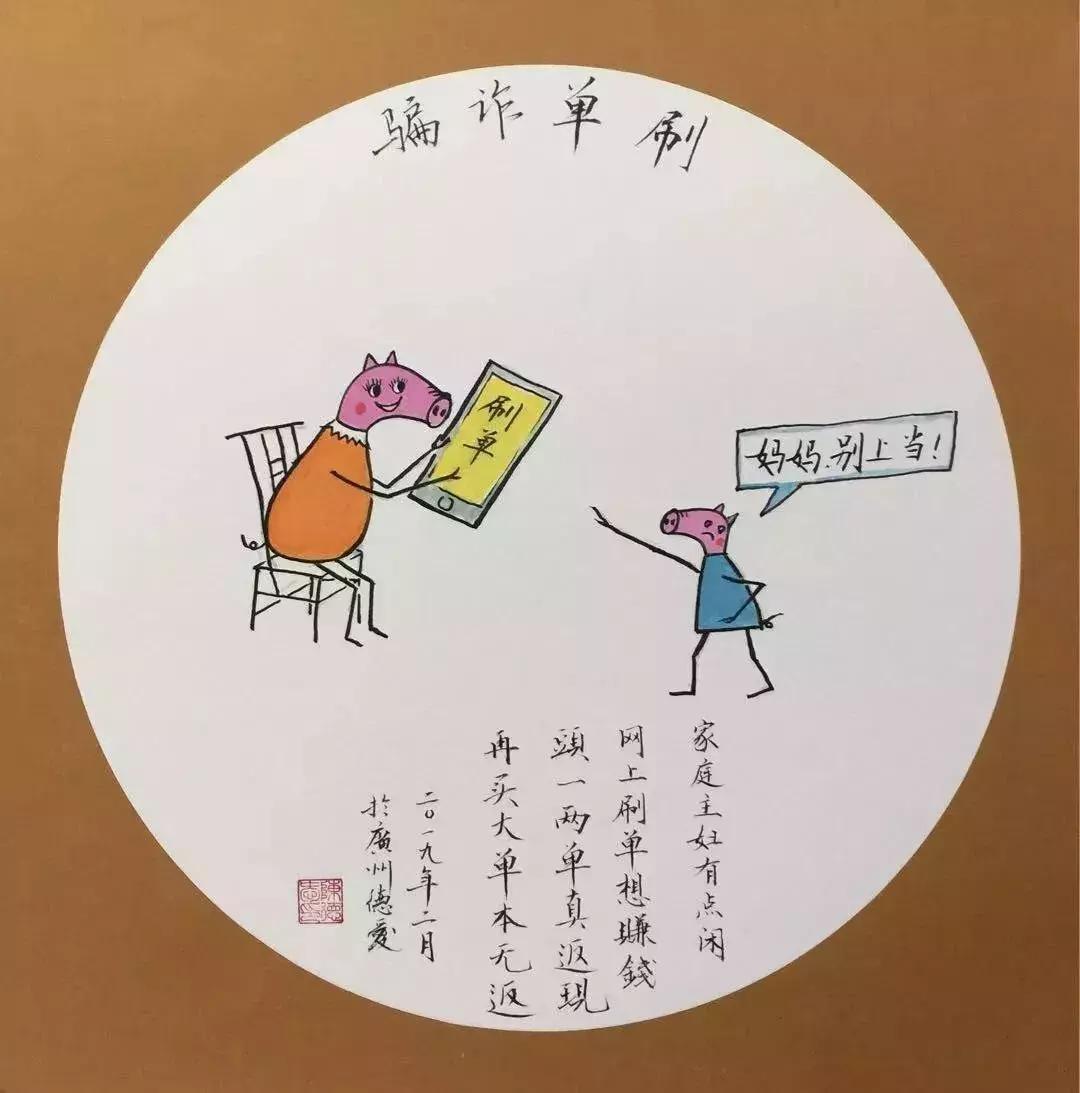 刷单诈骗
刷单
妈妈.别上当!
家庭主妇有点闲
网上刷单想賺錢
頭一两单真返現
再买大单本无返
二〇一九年二月
於廣州德愛